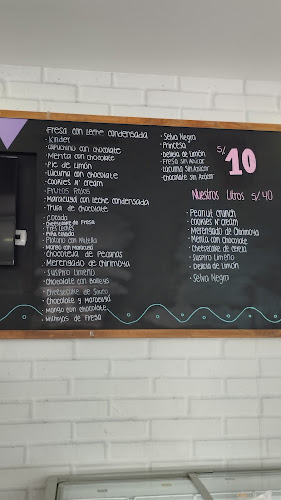 Fresa con Leche condensada
Kinder
Capuchino con chocolate
Menta con chocolate
Pie de Limón
Lúcuma con Chocolate
Cookies N' cream
Frutos Rojos
Maracuyá con Leche condensada
Trufa de chocolate
Cocada
Cheesecake de Fresa
Tres Leches
Piña Colada
Plátano con Nutella
Mango con Maracuyá
Chocoteja de Pecanas
Merengado de Chirimoya
Suspiro Limeño
Chocolate con Baileys
Cheesecake de Sauco
Chocolate y Maracuyá
Mango con Chocolate
de Fresa
Selva Negra
Princesa
Delicia de Limón
Fresa sin Azúcar
Lúcuma sin Azúcar
Chocolate sin Azúcar
S/. 10
Nuestros Litros S/.40
Peanut Crunch
Cookies N' Cream
Merengado de Chirimoya
Menta con Chocolate
Cheesecake de
Suspiro Limeño
Delicia de Limón
Selva Negra